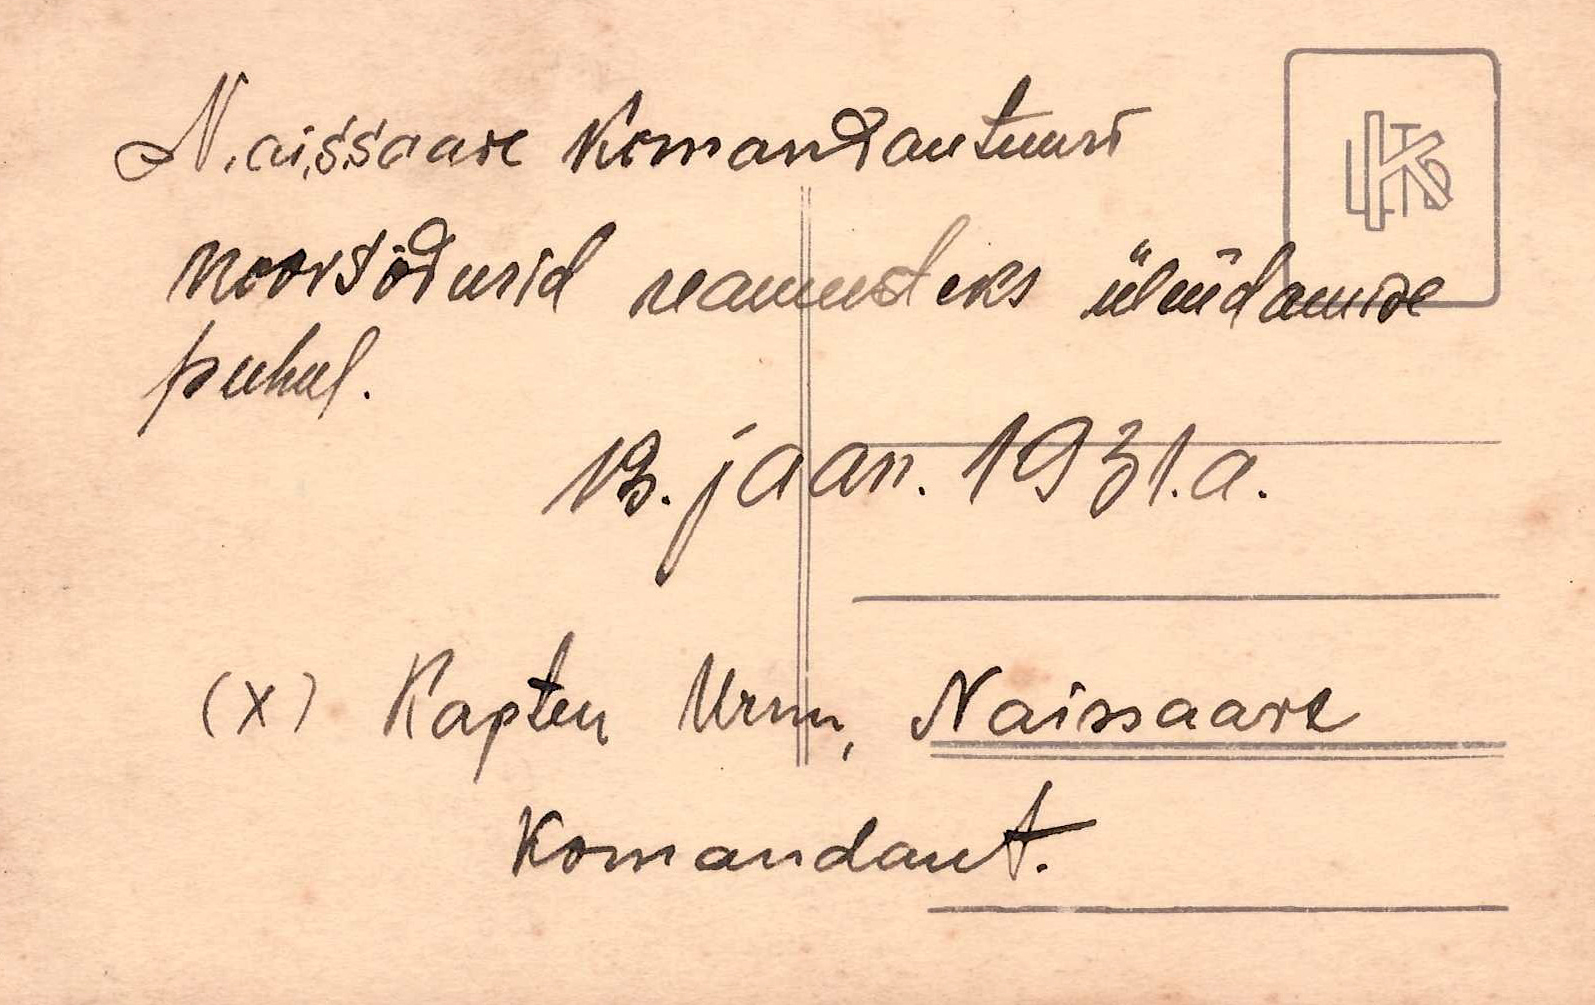 Naissaare Komandantuuri
noorsõdurid reameesteks ülendamise
puhul.
13. jaan. 1931. a.
(x) Kapten Urm, Naissaare
Komandant.